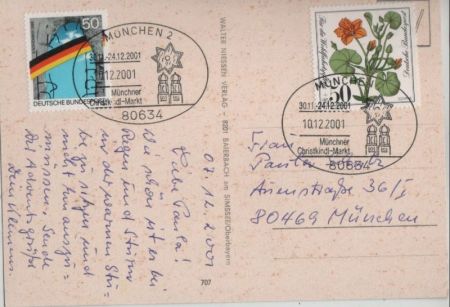 50
DEUTSCHE BUNDESPOST
MÜNCHEN 2
30.11.-24.12.2001
10.12.2001
Münchner
Christkindl-Markt
80634
Deutsche Bundespost
50
MÜNCHEN
30.11.-24.12.2001
10.12.2001
Münchner
Christkindl-Markt
80634
WALTER NIESSEN VERLAG · 8201 BAIERBACH am SIMSSEE/Oberbayern
707
07.12.2001
Liebe Paula!
Wie schön ist es bei
Regen und Sturm
in der warmen Stu-
be zu sitzen und
nicht hinauszu-
müssen. Sende
Dir Adventsgrüße
Dein Clemens.
Frau
Paula
Auenstraße 36/I
80469 München